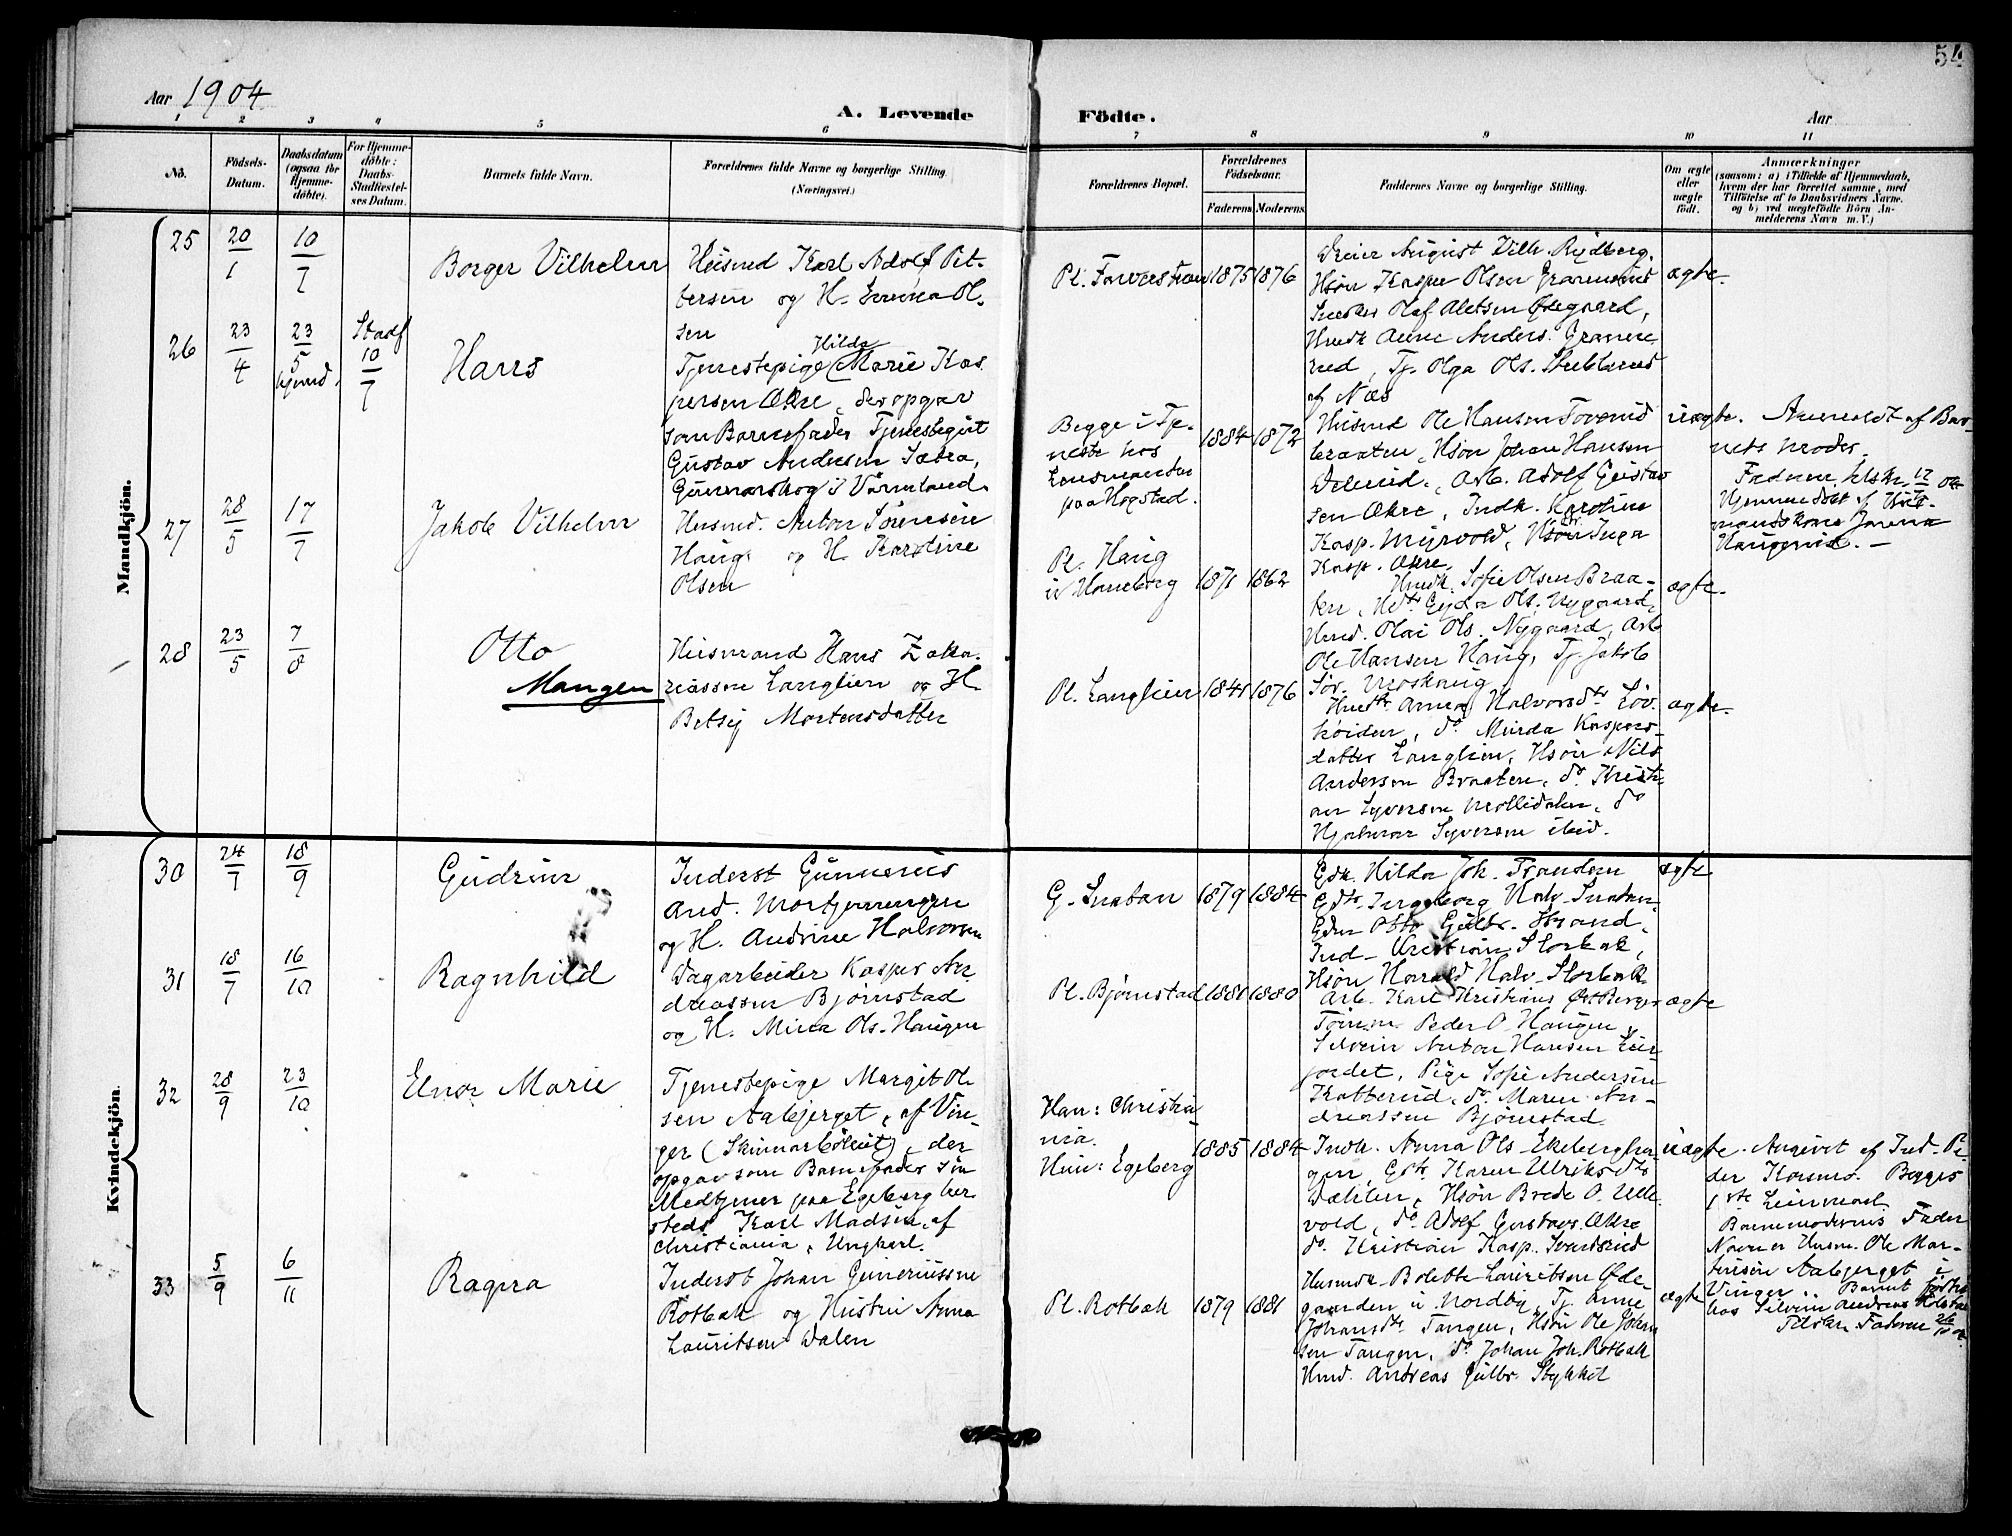 54
Aar 1904
A. Levende
Födte.
Aar
1 2 3 4 5 6 7 8 9 10 11
No.
Födsels-
Datum.
Daabsdatum
(ogsaa for
Hjemme-
döbte).
For Hjemme-
döbte:
Daabs-
Stadfæstel-
ses Datum.
Barnets fulde Navn.
Forældrenes fulde Navne og borgerlige Stilling.
(Næringsvei.)
Forældrenes Bopæl.
Forældrenes
Födselsaar.
Faderens
Moderens
Faddernes Navne og borgerlige Stilling.
Om ægte
eller
uægte
født.
Anmærkninger
(saasom: a) i Tilfælde af Hjemmedaab,
hvem der har forrettet samme, med
Tilföielse af to Daabsvidners Navne.
og b) ved uægtefödte Börn An-
melderens Navn m. V.)
Mandkjön.
25
20/1
10/7
Borger Vilhelm
Husmd Karl Adolf Pet-
tersen og H. Emma Ol-
sen
Pl.
1875
1876
August Vilh. Rydberg,
Hsøn Kasper Olsen
Olaf Aletsen Ødegaard,
Husk Anne Anders.
rud, Tj. Olga Ols.
af Næs
ægte.
26
23/4
23/5
hjemd.
Stadf
10/7
Hans
Hilda
Tjenestepige (Marie Kas
persen Økre, der opgav
som Barnefader Tjenestegut
Gustav Andersen Sætra,
Gunnarskog i Värmland.
Begge i Tje-
neste hos
Lensmanden
paa Hogstad.
1884
1872
Husmd Ole Hansen
braaten, Hsøn Johan Hansen
Arb. Adolf Gustav
sen Økre, Indk. Karoline
Kasp. Myrvold, Hsøn Inga
Kasp. Økre.
uægte.
Anmeldt af Bar-
nets moder.
Faderen tilskr. 12/
Hjemmedøbt af Hus-
mandskone
27
28/5
17/7
Jakob Vilhelm
Husmd. Anton Sörensen
Haug og H. Karoline
Olsen
Pl. Haug
u/ Haneborg
1871
1862
Husk. Sofie Olsen Braa-
ten, Ols. Nygaard,
Husd. Olai Ols. Nygaard, Arb
Ole Hansen Haug, Tj. Jakob
Sör.
ægte.
28
23/5
7/8
Otto
Mangen
Husmand Hans Zaka-
riassen Langlien og H.
Betsy Mortensdatter
Pl. Langlien
1845
1876
Anna Halvorsdtr Löv-
höiden, do Minda Kaspers-
datter Langlien, Hsön Nils
Andersen Braaten, do Kristi-
an Syversen Mollidalen, do
Hjalmar Syversen ibid.
ægte.
Kvindekjön.
30
24/7
18/9
Gudrun
Inderst Gunnerius
And. Mortjernengen
og H. Andrine Halvorsen
G.
1879
1884
Gdk. Hilda Joh. Tranden
Gdtr. Ingeborg Halv.
Gdm Otto Gulbr. Strand,
Ind. Kristian Storbak,
Hsön Harald Halv. Storbak
ægte
31
18/7
16/10
Ragnhild
Dagarbeider Kasper An
dreassen Björnstad
og H. Mina Ols. Haugen
Pl. Björnstad
1881
1880
Arb. Karl Kristians
Tömm. Peder O. Haugen,
Selveier Anton Hansen
jordet, Pige Sofie Andersen
Katterud, do. Maren An-
dreassen Björnstad.
ægte
32
28/9
23/10
Elnor Marie
Tjenestepige Margit Ol-
sen Aabjerget, af Vin-
ger (Skinnarbölet), der
opgav som Barnefader sin
Medtjener paa Egeberg her-
steds Karl Madsen, af
Christiania, Ungkarl.
Han: Christia
nia.
Hun: Egeberg
1885
1884
Indk. Anna Ols. Ekeberghau-
gen, Gdtr. Karen Ulriksdtr
Dahlen, Hsön Brede O. Ulle
vold, do. Adolf Gustavs. Økre
do. Kristian Kasp.
uægte.
Angivet af Ind. Pe-
der Kosmo. Begges
1ste Leiermaal
Barnemoderens Fader
Navn er Husm. Ole Mar-
tinsen Aabjerget i
Vinger. Barnet födtes
hos Selveier Andreas
Tilskr. Faderen 26/
33
5/9
6/11
Ragna
Inderst Johan Guneriussen
Rotbak og Hustru Anna
Lauritsen Dalen
Pl. Rotbak
1879
1881
Husmk. Bolette Lauritsen Øde-
gaarden u/ Nordby, Tj. Anne
Johansdtr Tangen, Hsön Ole Johan
sen Tangen, do Johan Joh. Rotbak
Husd. Andreas Gulbr. Stykket
ægte